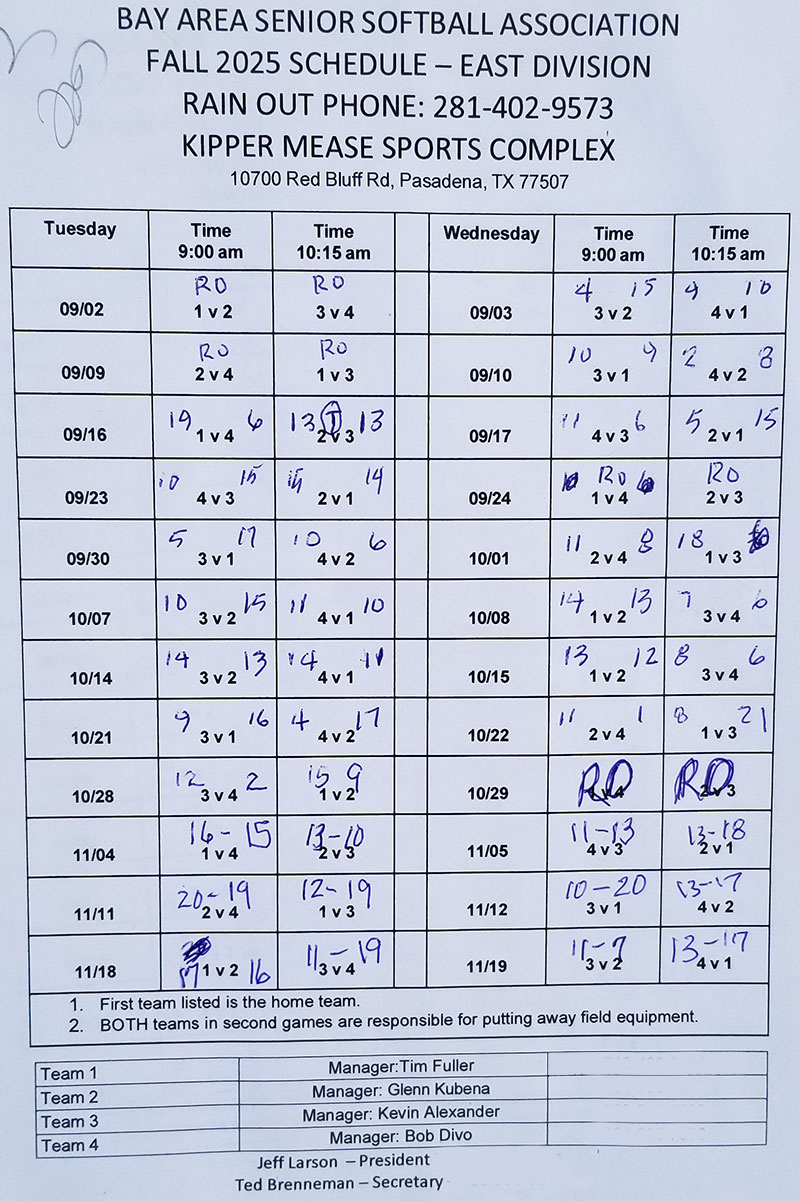 BAY AREA SENIOR SOFTBALL ASSOCIATION
FALL 2025 SCHEDULE – EAST DIVISION
RAIN OUT PHONE: 281-402-9573
KIPPER MEASE SPORTS COMPLEX
10700 Red Bluff Rd, Pasadena, TX 77507
Tuesday Time 9:00 am Time 10:15 am Wednesday Time 9:00 am Time 10:15 am
RO RO 4 15 9 10
09/02 1 v 2 3 v 4 09/03 3 v 2 4 v 1
RO RO 10 9 2 8
09/09 2 v 4 1 v 3 09/10 3 v 1 4 v 2
19 6 13 T 13 11 6 5 15
09/16 1 v 4 2 v 3 09/17 4 v 3 2 v 1
10 15 14 RO RO
09/23 4 v 3 2 v 1 09/24 1 v 4 2 v 3
5 17 10 6 11 8 18
09/30 3 v 1 4 v 2 10/01 2 v 4 1 v 3
10 15 11 10 14 13 7 6
10/07 3 v 2 4 v 1 10/08 1 v 2 3 v 4
14 13 14 11 13 12 8 6
10/14 3 v 2 4 v 1 10/15 1 v 2 3 v 4
9 16 4 17 11 1 8 21
10/21 3 v 1 4 v 2 10/22 2 v 4 1 v 3
12 2 15 9 RO RO
10/28 3 v 4 1 v 2 10/29 1 v 4 2 v 3
16-15 13-10 11-13 13-18
11/04 1 v 4 2 v 3 11/05 4 v 3 2 v 1
20-19 12-19 10-20 13-17
11/11 2 v 4 1 v 3 11/12 3 v 1 4 v 2
17 16 11-19 11-7 13-17
11/18 1 v 2 3 v 4 11/19 3 v 2 4 v 1
1. First team listed is the home team.
2. BOTH teams in second games are responsible for putting away field equipment.
Team 1 Manager:Tim Fuller
Team 2 Manager: Glenn Kubena
Team 3 Manager: Kevin Alexander
Team 4 Manager: Bob Divo
Jeff Larson – President
Ted Brenneman – Secretary